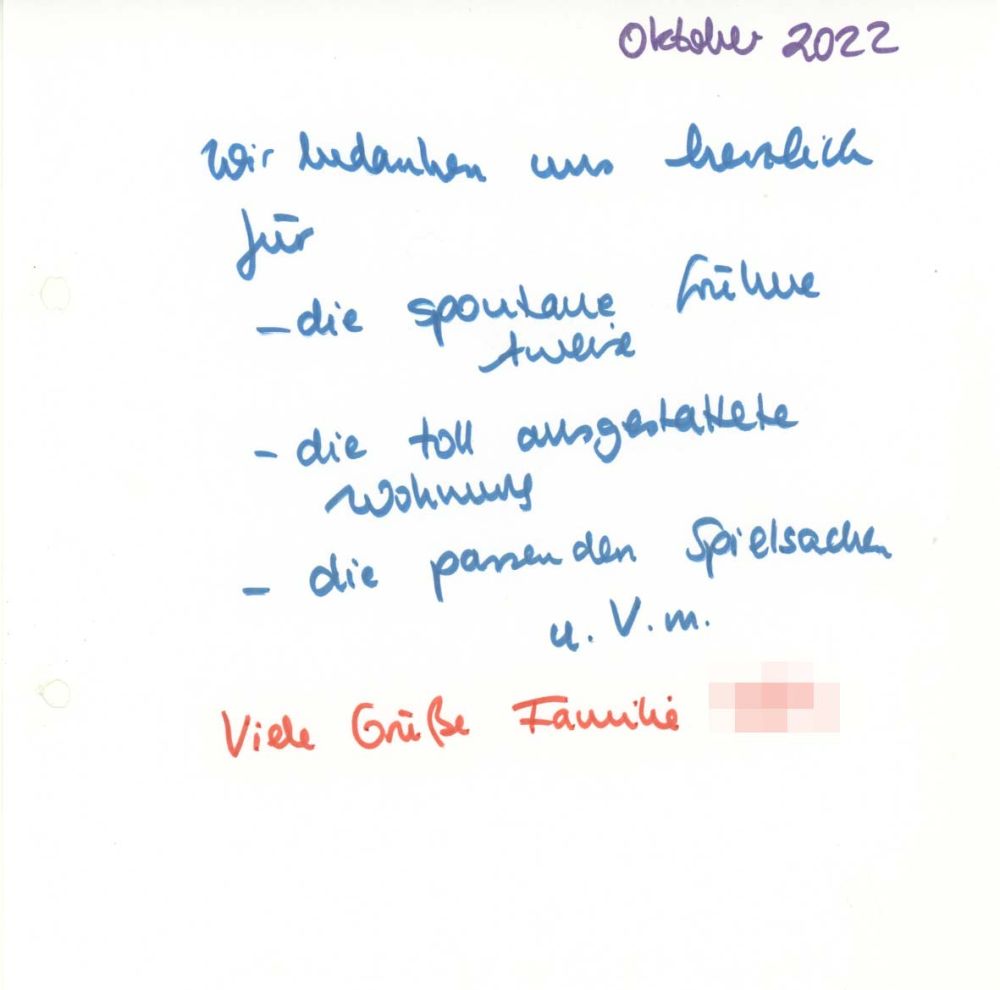 Oktober 2022
Wir bedanken uns herzlich
für
- die spontane frühere
Anreise
- die toll ausgestattete
Wohnung
- die passenden Spielsachen
u. V. m.
Viele Grüße Familie